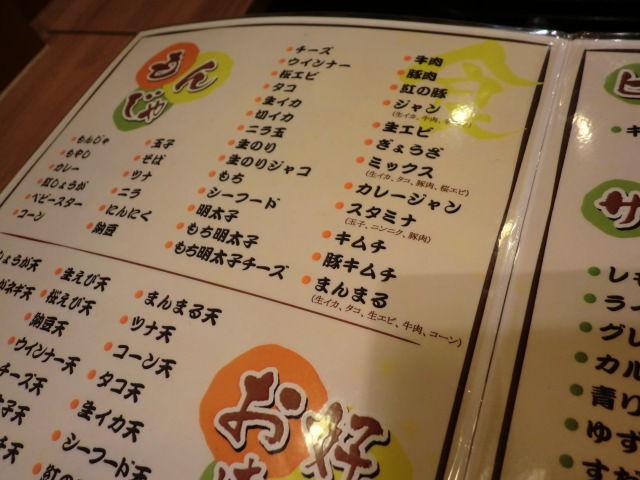 もんじゃ
もんじゃ
もやし
カレー
紅しょうが
ベビースター
コーン
玉子
そば
ツナ
ニラ
にんにく
納豆
チーズ
ウインナー
桜エビ
タコ
生イカ
切イカ
ニラ玉
生のり
生のりジャコ
もち
シーフード
明太子
もち明太子
もち明太子チーズ
牛肉
豚肉
紅の豚
ジャン
生エビ
ぎょうざ
ミックス
(生イカ、タコ、豚肉、桜エビ)
カレージャン
スタミナ
(玉子、ニンニク、豚肉)
キムチ
豚キムチ
まんまる
(生イカ、タコ、生エビ、牛肉、コーン)
しょうが天
ネギ天
納豆天
ウインナー天
チーズ天
生えび天
桜えび天
まんまる天
ツナ天
コーン天
タコ天
生イカ天
シーフード天
紅の
お好